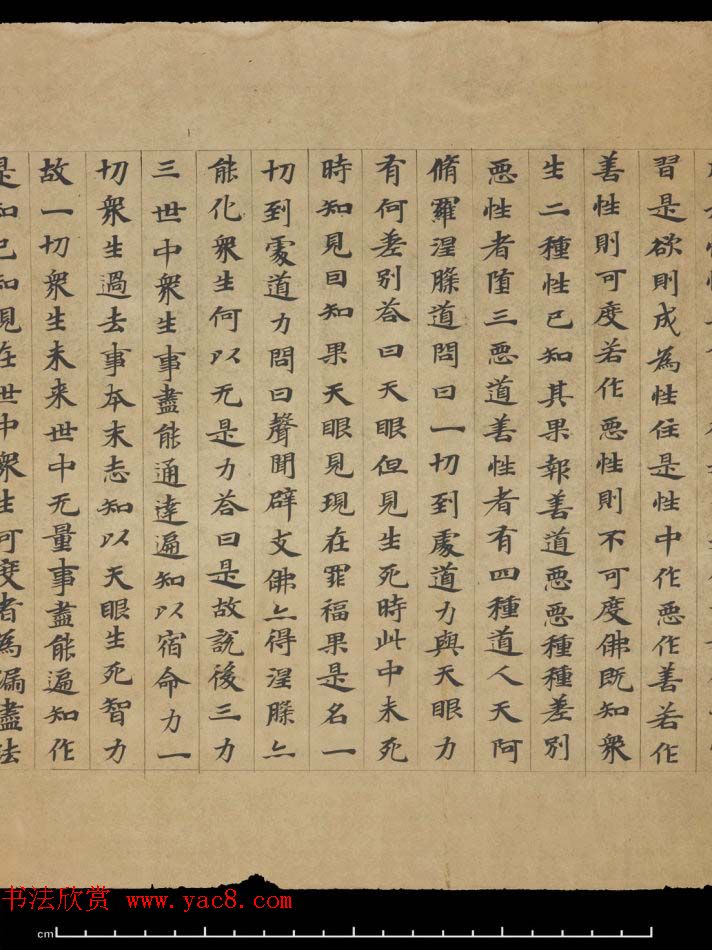 習是欲則成為性住是性中作惡作善若作
善性則可度若作惡性則不可度佛既知衆
生二種性已知其果報善道惡惡種種差別
惡性者墮三惡道善性者有四種道人天阿
脩羅涅縏道問曰一切到處道力與天眼力
有何差别荅曰天眼但見生死時此中未死
時知見曰知果天眼見現在罪福果是名一
切到處道力問曰聲聞辟支佛亦得涅縏亦
能化衆生何以无是力荅曰是故說後三力
三世中衆生事盡能通達遍知以宿命力一
切衆生過去事本末悉知以天眼生死智力
故一切衆生未来世中无量事盡能遍知作
是知已知現在世中衆生可度者為漏盡法
书法欣赏 www.yac8.com
cm